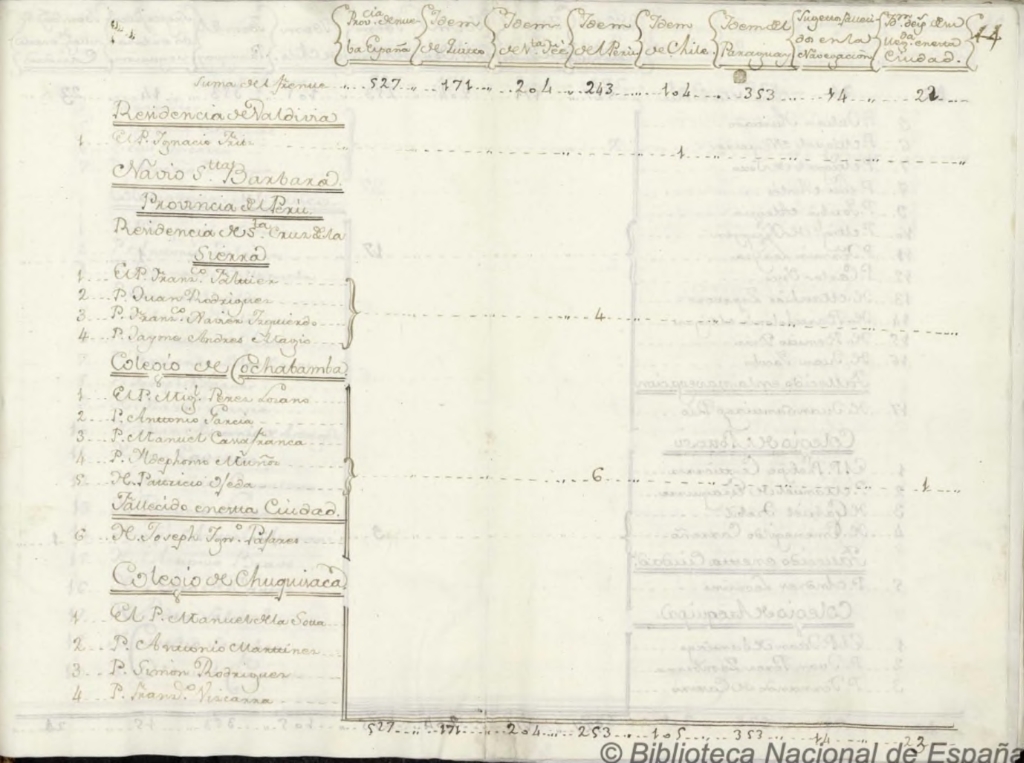 Prov.cia de Nue-
ba España
Idem
de Quito
Idem
de N.a Fee
Idem
del Peru
Idem
de Chile
Idem del
Paraguay
Sugetos falleci-
dos en la
Navegacion
en esta
Ciudad.
44
Suma del frente 527 171 204 243 104 353 14 22
Residencia de Valdivia
1 El P. Ignacio 1
Navio S.ta Barbara.
Provincia del Perú.
Residencia de S.ta Cruz de la
Sierra
1 El P. Franz.o
2 P. Juan Rodriguez
3 P. Franz.o Xavier Izquierdo 4
4 P. Payono Andres
Colegio de Cochabamba
1 El P. Mig.l Perez Lozano
2 P. Antonio Garcia
3 P. Manuel Casafranca
4 P. Ildephonso Muñoz
5 H. Patricio Ojeda 6 1
Fallecido en esta Ciudad.
6 H. Joseph Ign.o Pajares
Colegio de Chuquisaca
1 El P. Manuel de la Sota
2 P. Antonio Martinez
3 P. Simon Rodriguez
4 P. Franz.o Vizcarra
527 171 204 253 105 353 14 23
© Biblioteca Nacional de España